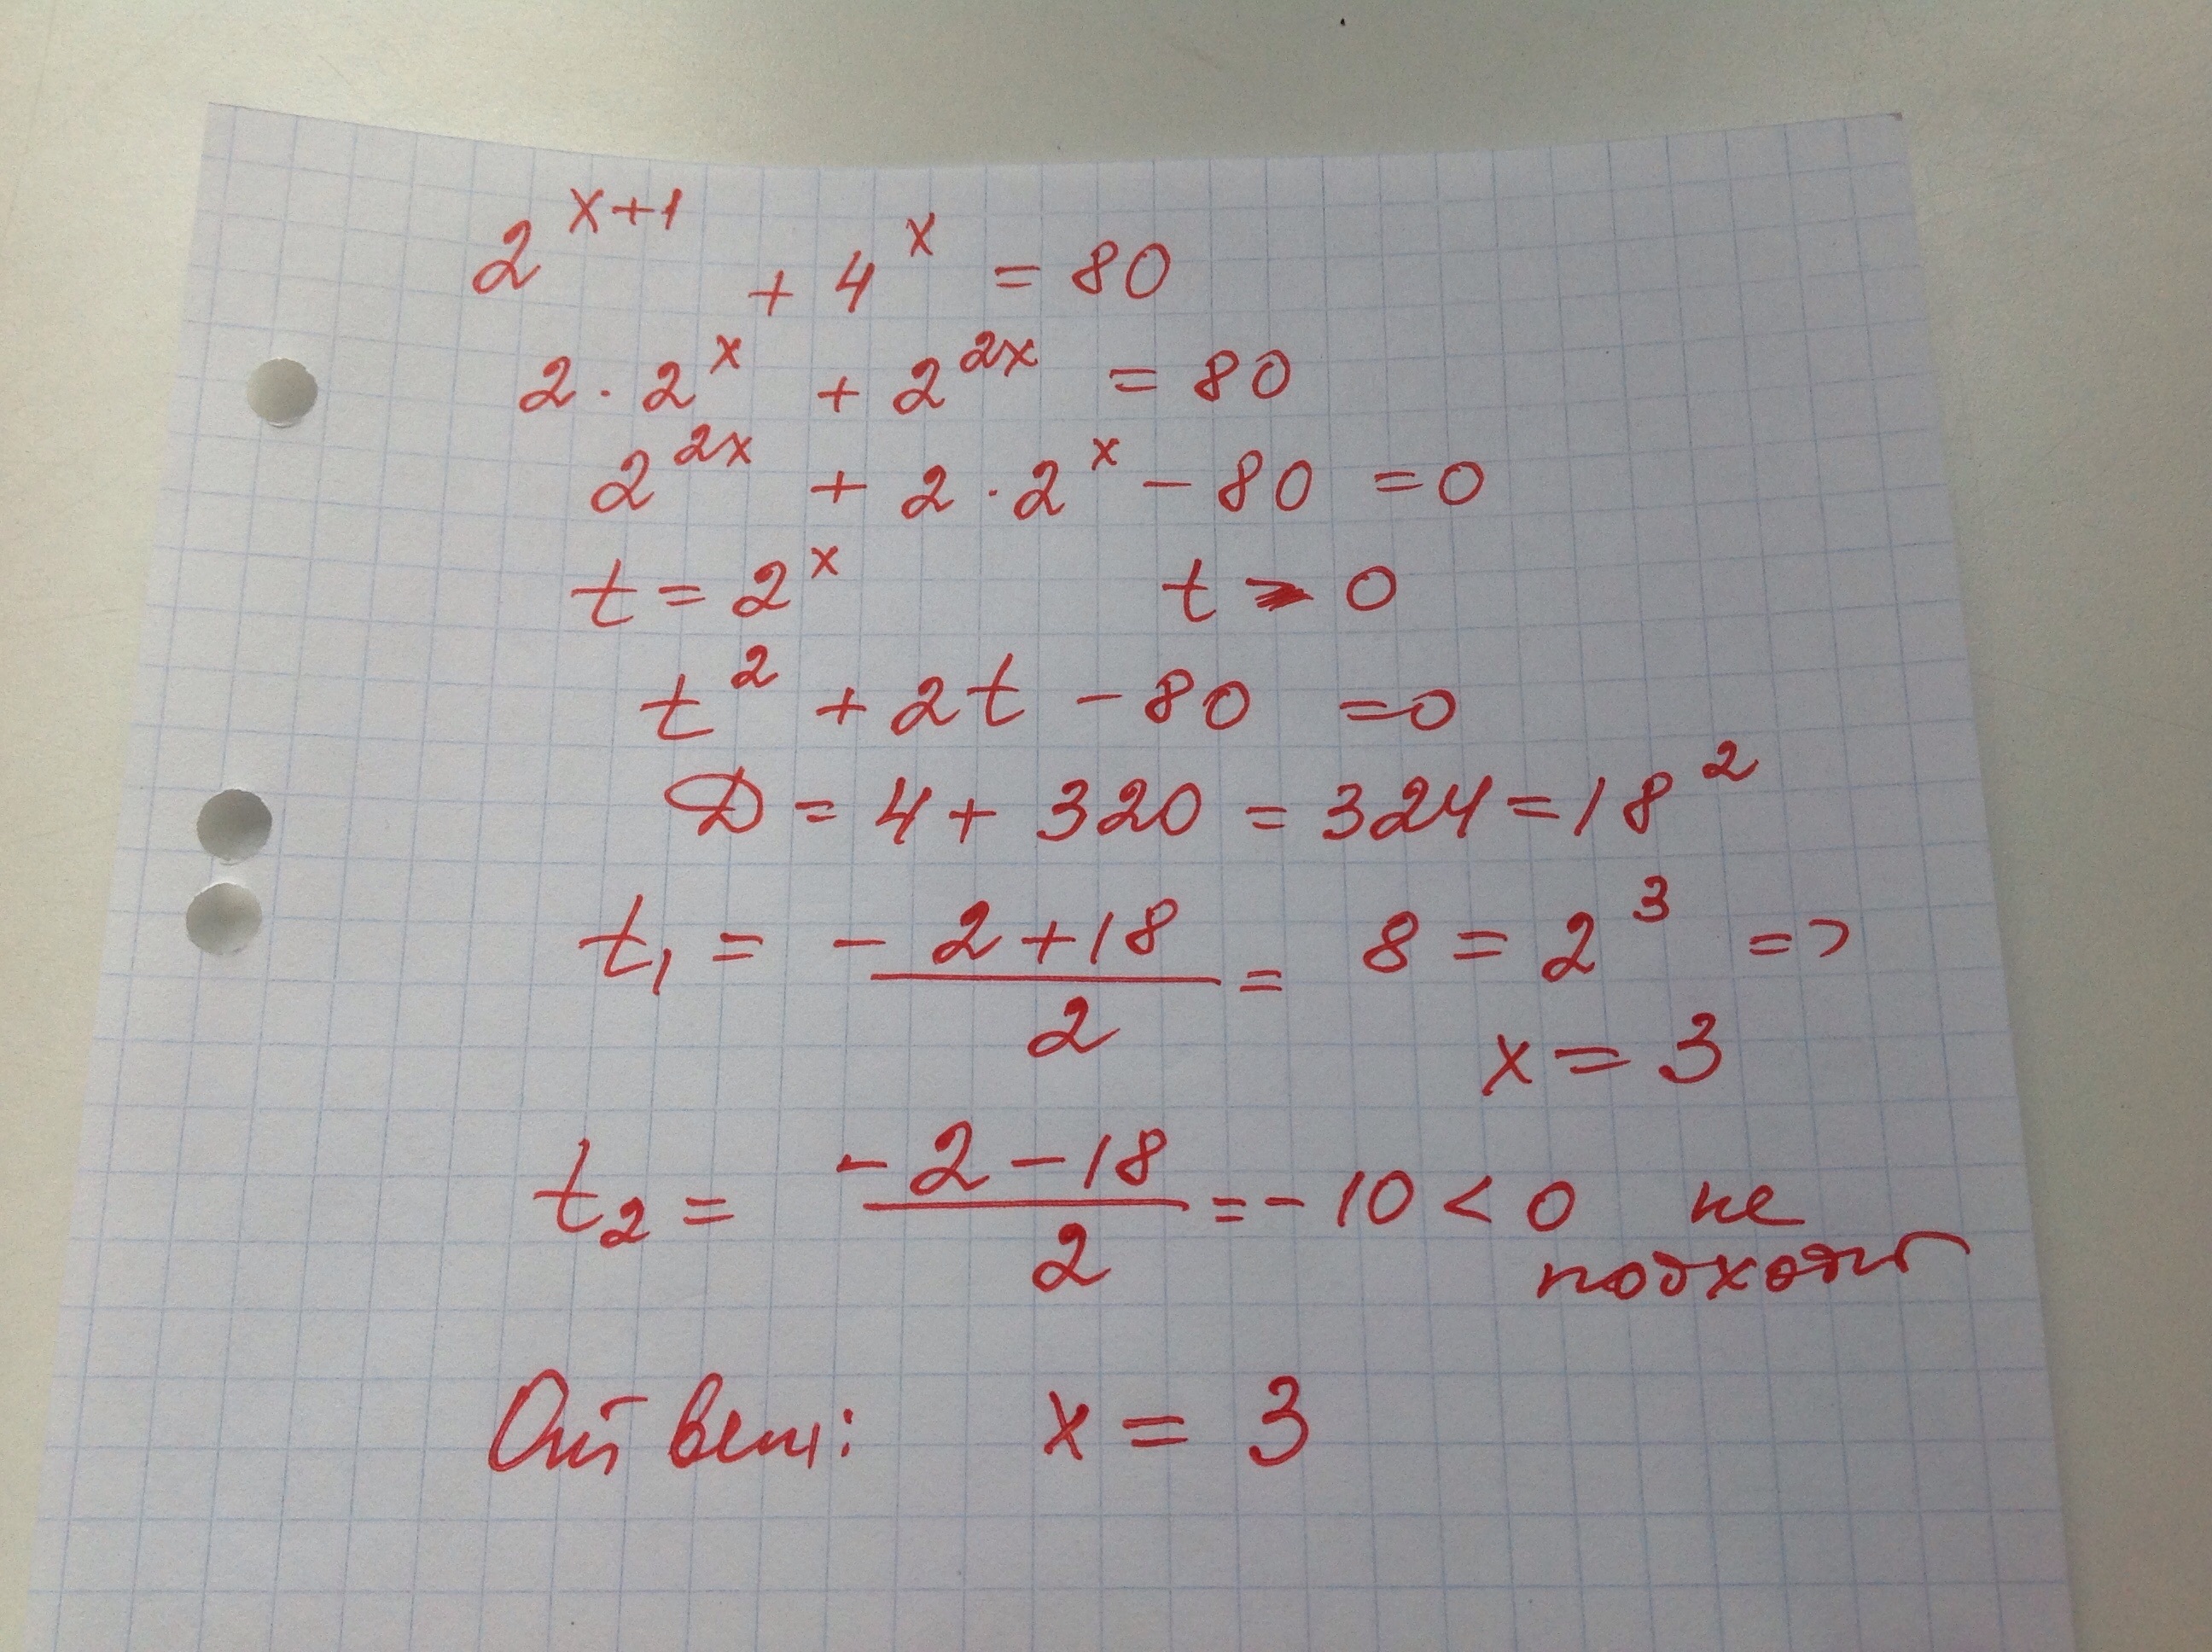 2^{x+1} + 4^x = 80
2 · 2^x + 2^{2x} = 80
2^{2x} + 2 · 2^x − 80 = 0
t = 2^x t > 0
t^2 + 2t − 80 = 0
D = 4 + 320 = 324 = 18^2
t_1 = \frac{-2+18}{2} = 8 = 2^3 =>
x = 3
t_2 = \frac{-2-18}{2} = −10 < 0 не
подходит
Ответ: x = 3